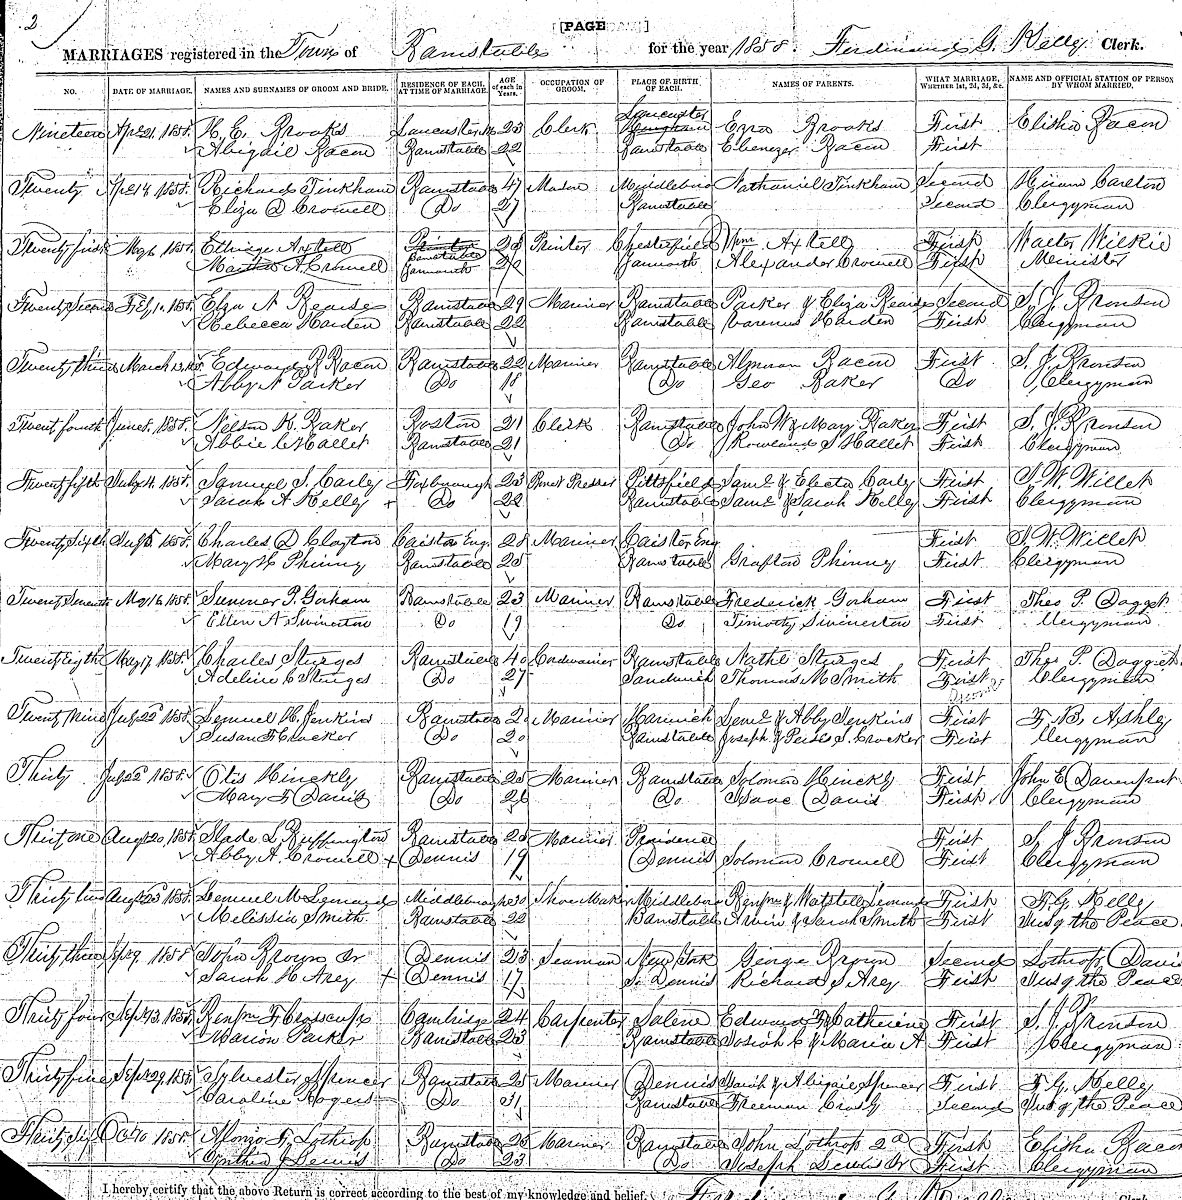 2
[PAGE]
MARRIAGES registered in the Town of Barnstable for the year 1858. Ferdinand G. Kelly Clerk.
NO. DATE OF MARRIAGE. NAMES AND SURNAMES OF GROOM AND BRIDE. RESIDENCE OF EACH, AT TIME OF MARRIAGE. AGE of each in Years. OCCUPATION OF GROOM. PLACE OF BIRTH OF EACH. NAMES OF PARENTS. WHAT MARRIAGE, WHETHER 1st, 2d, 3d, &c. NAME AND OFFICIAL STATION OF PERSON BY WHOM MARRIED.
Nineteen 1858. H. E. Brooks Lancaster 23 Clerk Lancaster Ezra Brooks First Elisha Bacon
Abigail Bacon Barnstable 22 Barnstable Ebenezer Bacon First
Twenty 1858. Richard Tinkham Barnstable 47 Mason Middleboro Nathaniel Tinkham Second Hiram Carlton
Eliza D Crowell Do 27 Barnstable Second Clergyman
Twenty first May 6 1858. Axtell Printer Chesterfield Wm Axtell First Walter Wilkie
Martha A Crowell Barnstable Yarmouth Yarmouth Alexander Crowell First Minister
Twenty Second 1858. Eliza A Bearse Barnstable 29 Mariner Barnstable Parker & Eliza Bearse Second S. J. Bronson
Rebecca Harden Barnstable 22 Barnstable Harden First Clergyman
Twenty third March 1858. Edward B Bacon Barnstable 22 Mariner Barnstable Alpheus Bacon First S. J. Bronson
Abby A Parker Do 18 Do Geo Baker Do Clergyman
Twenty fourth June 1858. Nelson K. Baker Boston 21 Clerk Barnstable John W & Mary Baker First S. J. Bronson
Abbie C Hallet Barnstable 21 Do Rowland S Hallet First Clergyman
Twenty fifth July 4 1858. Samuel S. Carly Foxborough 23 Bonnet Presser Pittsfield Saml & Electa Carly First S. W. Willet
Sarah A Kelley + Do 22 Barnstable Saml & Sarah Kelley First Clergyman
Twenty Sixth 1858. Charles D Clayton Caistor Eng. 28 Mariner Caistor Eng First S. W. Willet
Mary H Phinny Barnstable 25 Barnstable Grafton Phinny First Clergyman
Twenty Seventh May 16 1858. Sumner P. Gorham Barnstable 23 Mariner Barnstable Frederick Gorham First Theo P. Dogget
Ellen A Swinerton Do 19 Do Timothy Swinerton First Clergyman
Twenty Eighth May 17 1858. Charles Sturges Barnstable 40 Cordwainer Barnstable Nathl Sturges First Theo P. Dogget
Adeline C Sturges Do 27 Sandwich Thomas M Smith First Second Clergyman
Twenty Nine July 22d 1858. Lemuel H. Jenkins Barnstable Mariner Harwich Leml & Abby Jenkins First F. B. Ashley
Susan F Crocker Do 20 Barnstable Joseph & Persis S. Crocker First Clergyman
Thirty July 22d 1858. Otis Hinckly Barnstable 25 Mariner Barnstable Solomon Hinckly First John E Davenport
Mary F Davis Do 26 Do Isaac Davis First Clergyman
Thirty one Augt 20, 1858. Slade L Buffington Barnstable 23 Mariner Providence First S. J. Bronson
Abby A. Crowell + Dennis 19 Dennis Solomon Crowell First Clergyman
Thirty two Augt 23d 1858. Lemuel M Lenard Middleboro 30 Shoe Maker Middleboro Benjm & Leonard First F. G. Kelly
Melissia Smith Barnstable 22 Barnstable Alvin & Sarah Smith First Jus of the Peace
Thirty three Sep 9 1858. John Brown Jr Dennis 23 Seaman New York George Brown Second Lothrop Davis
Sarah H Arey + Dennis 17 So. Dennis Richard S Arey First Jus of the Peace
Thirty four Sept 13 1858. Benjm F Crosscup Cambridge 24 Carpenter Salem Edward & Catherine First S. J. Bronson
Marion Parker Barnstable 23 Barnstable Josiah C & Maria A First Clergyman
Thirty five Sept 29 1858. Sylvester Spencer Barnstable 25 Mariner Dennis Isaiah & Abigail Spencer First F. G. Kelly
Caroline Rogers Do 31 Barnstable Freeman Crosby Second Jus of the Peace
Thirty Six Oct 10 1858. Alfonzo F. Lothrop Barnstable 25 Mariner Barnstable John Lothrop 2d First Elisha Bacon
Cynthia J Lewis Do 23 Do Joseph Lewis Jr First Clergyman
I hereby certify that the above Return is correct according to the best of my knowledge and belief.